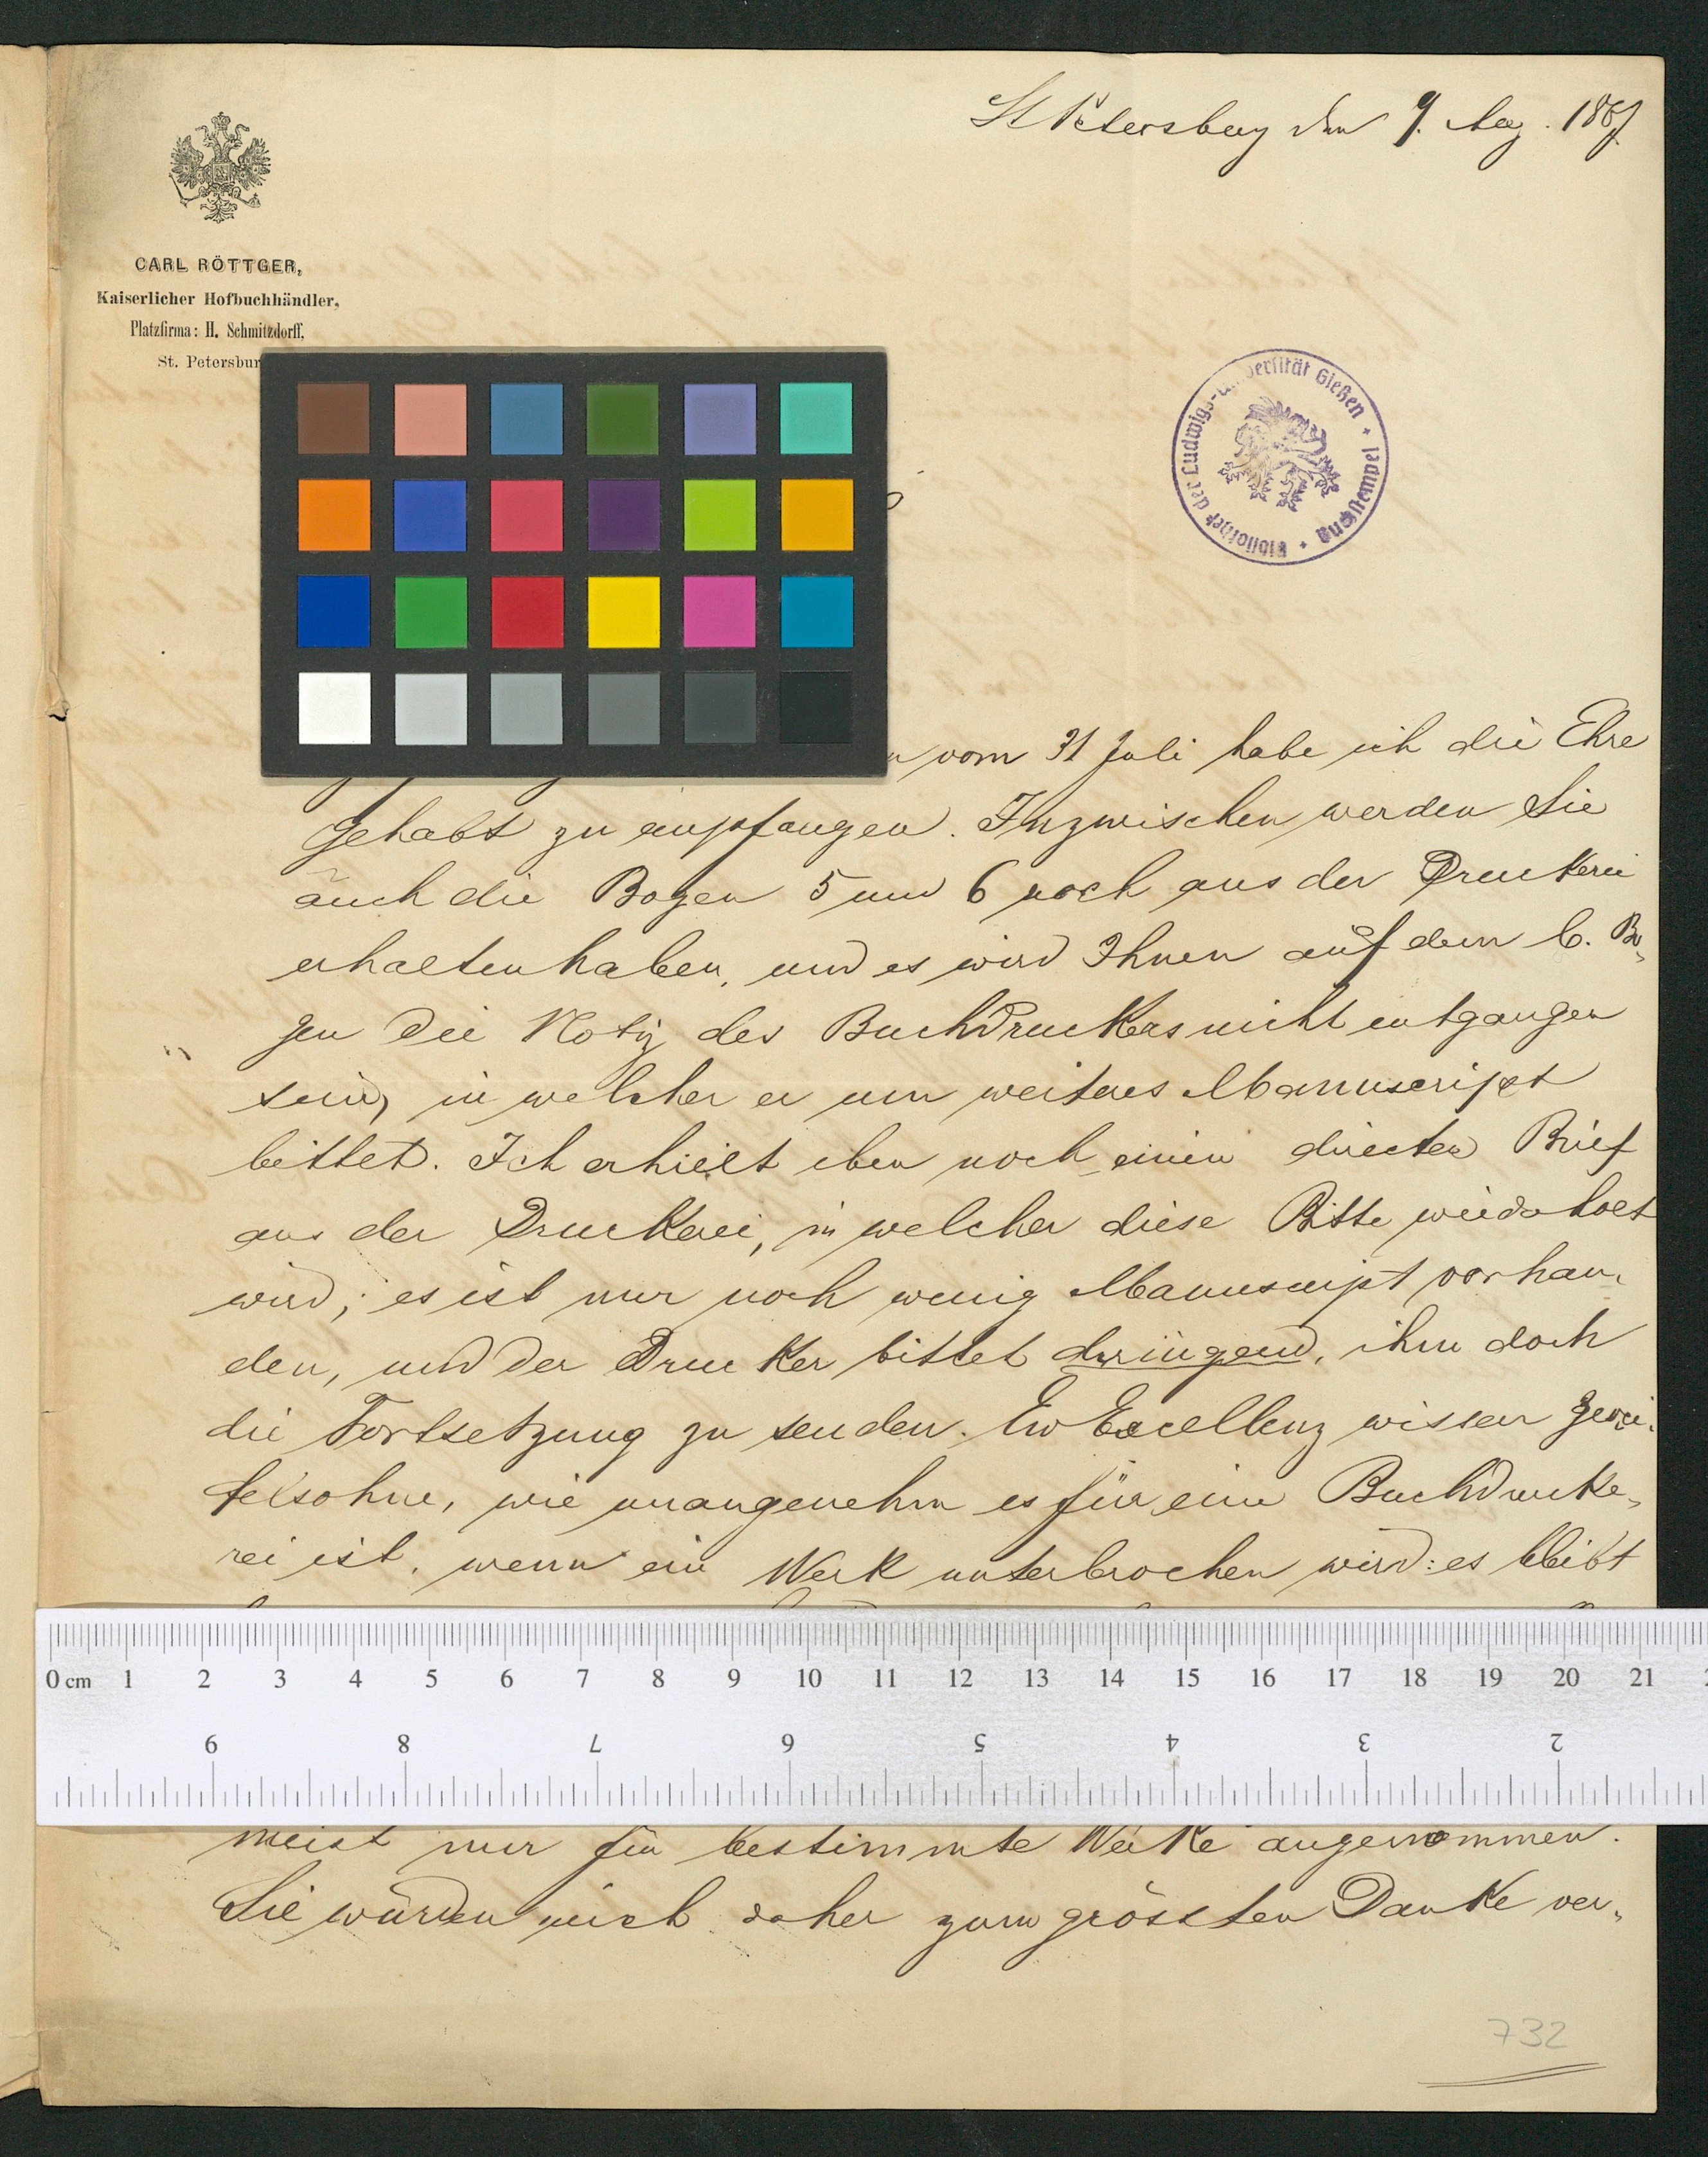 St Petersburg den 9. Aug. 1887
CARL RÖTTGER,
Kaiserlicher Hofbuchhändler,
Platzfirma: H. Schmitzdorff.
St. Petersbur
Bibliothek der Ludwigs-Universität Gießen + Buchstempel +
vom 31 Juli habe ich die Ehre
gehabt zu empfangen. Inzwischen werden Sie
auch die Bogen 5 und 6 noch aus der Druckerei
erhalten haben, und es wird Ihnen auf dem 6. Bo-
gen die Notiz des Buchdruckers nicht entgangen
sein, in welcher er um weiteres Manuscript
bittet. Ich erhielt eben noch einen directen Brief
aus der Druckerei, in welcher diese Bitte wiederholt
wird; es ist nur noch wenig Manuscript vorhan-
den, und der Drucker bittet dringend, ihm doch
die Fortsetzung zu senden. Ew Excellenz wissen zwei-
felsohne, wie unangenehm es für eine Buchdrucke-
rei ist, wenn ein Werk unterbrochen wird: es bleibt
0 cm 1 2 3 4 5 6 7 8 9 10 11 12 13 14 15 16 17 18 19 20 21
9 8 7 6 5 4 3 2
meist nur für bestimmte Werke angenommen.
Sie würden mich daher zum grössten Danke ver-
732